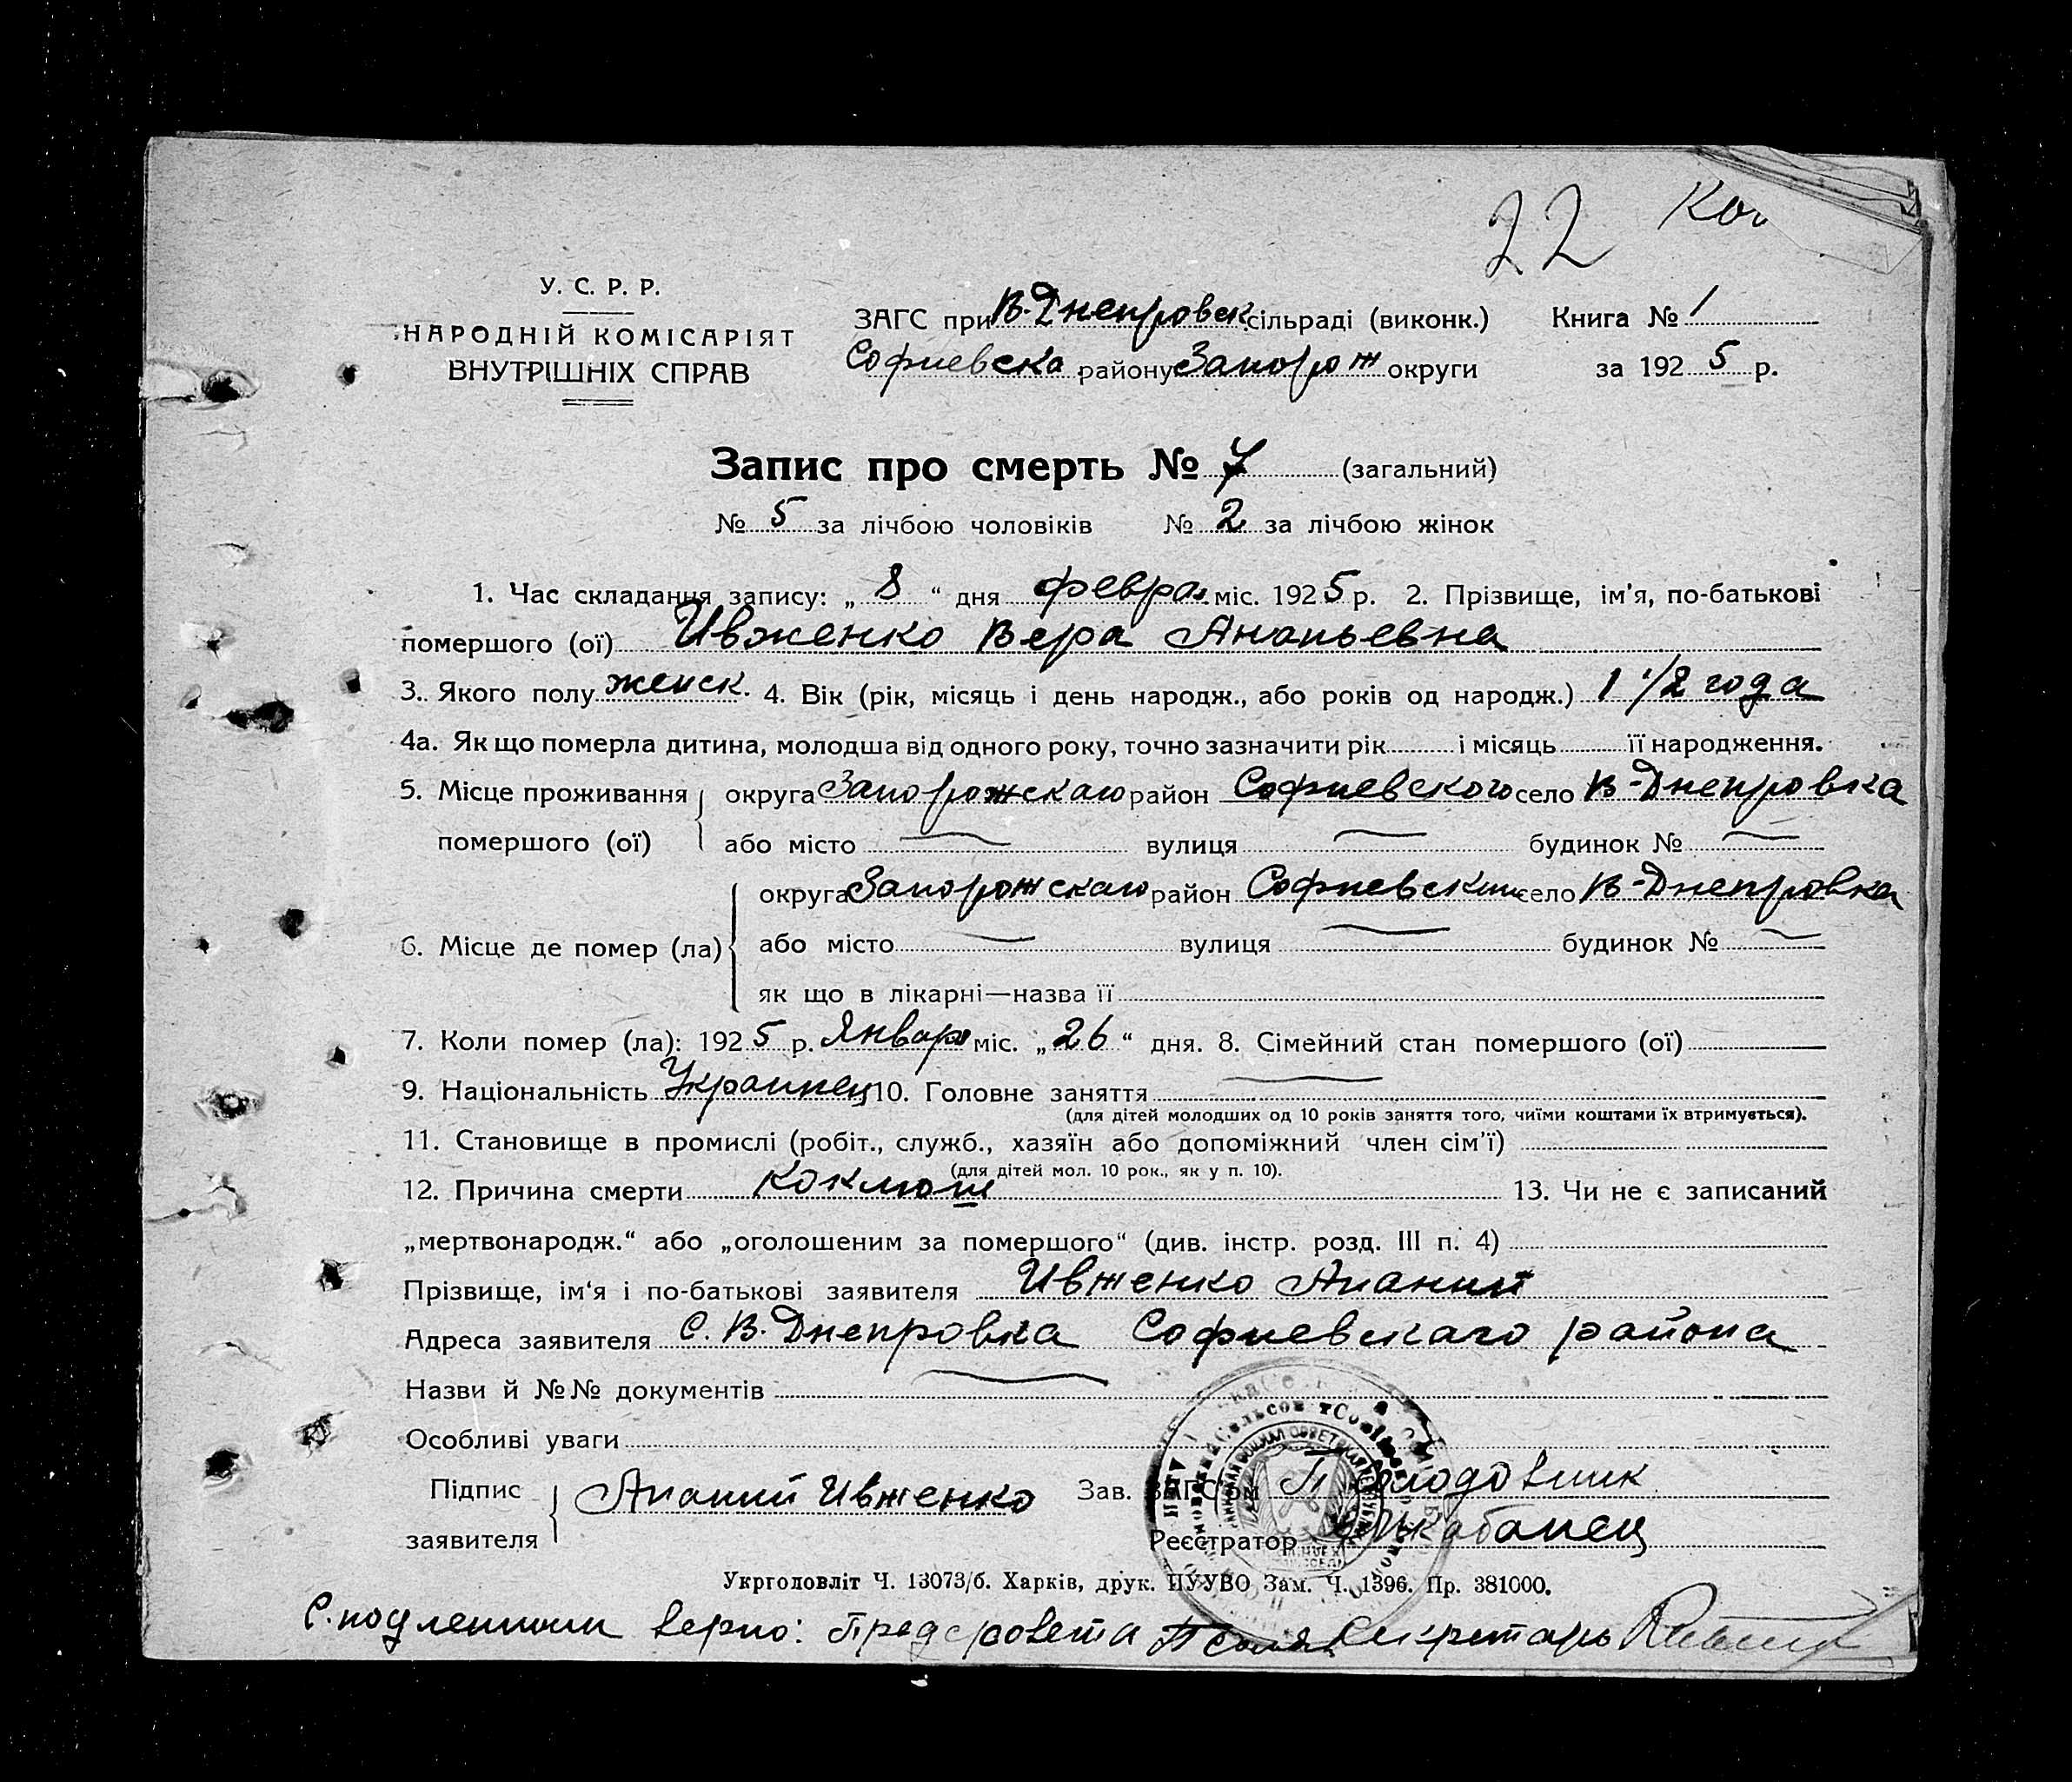 22 Коп
У. С. Р. Р.
НАРОДНІЙ КОМІСАРІЯТ
ВНУТРІШНІХ СПРАВ
ЗАГС при В.Днепровск сільраді (виконк.) Книга № 1
Софиевска району Запорож округи за 1925 р.
Запис про смерть № 7 (загальний)
№ 5 за лічбою чоловіків № 2 за лічбою жінок
1. Час складання запису: „ 8 “ дня феврал міс. 1925 р. 2. Прізвище, ім'я, по-батькові
помершого (ої) Ивженко Вера Ананьевна
3. Якого полу женск. 4. Вік (рік, місяць і день народж., або років од народж.) 1 1/2 года
4а. Як що померла дитина, молодша від одного року, точно зазначити рік і місяць її народження.
5. Місце проживання округа Запорожскаго район Софиевского село В-Днепровка
помершого (ої) або місто — вулиця — будинок № —
округа Запорожскаго район Софиевский село В-Днепровка
6. Місце де помер (ла) або місто — вулиця — будинок № —
як що в лікарні—назва її
7. Коли помер (ла): 1925 р. Январ міс. „ 26 “ дня. 8. Сімейний стан помершого (ої)
9. Національність Украинец 10. Головне заняття —
(для дітей молодших од 10 років заняття того, чиїми коштами їх втримується).
11. Становище в промислі (робіт., служб., хазяїн або допоміжний член сім'ї)
(для дітей мол. 10 рок., як у п. 10).
12. Причина смерти коклюш 13. Чи не є записаний
„мертвонародж.“ або „оголошеним за помершого“ (див. інстр. розд. III п. 4)
Прізвище, ім'я і по-батькові заявителя Ивженко Ананий
Адреса заявителя С. В. Днепровка Софиевскаго района
Назви й №№ документів —
Особливі уваги
Підпис Ананий Ивженко Зав. ЗАГС'ом
заявителя Реєстратор
Укрголовліт Ч. 13073/б. Харків, друк. ПУУВО Зам. Ч. 1396. Пр. 381000.
С. подленным верно: Пред с/совета Секретарь